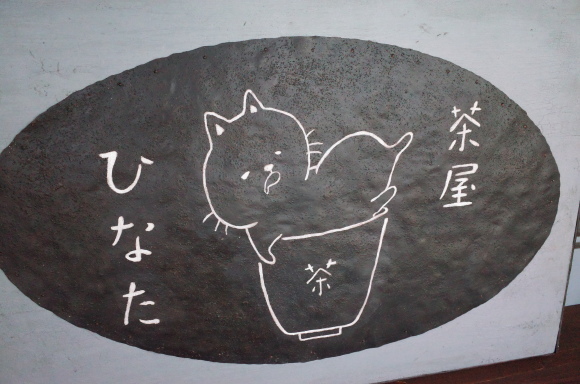 茶屋
ひなた
茶